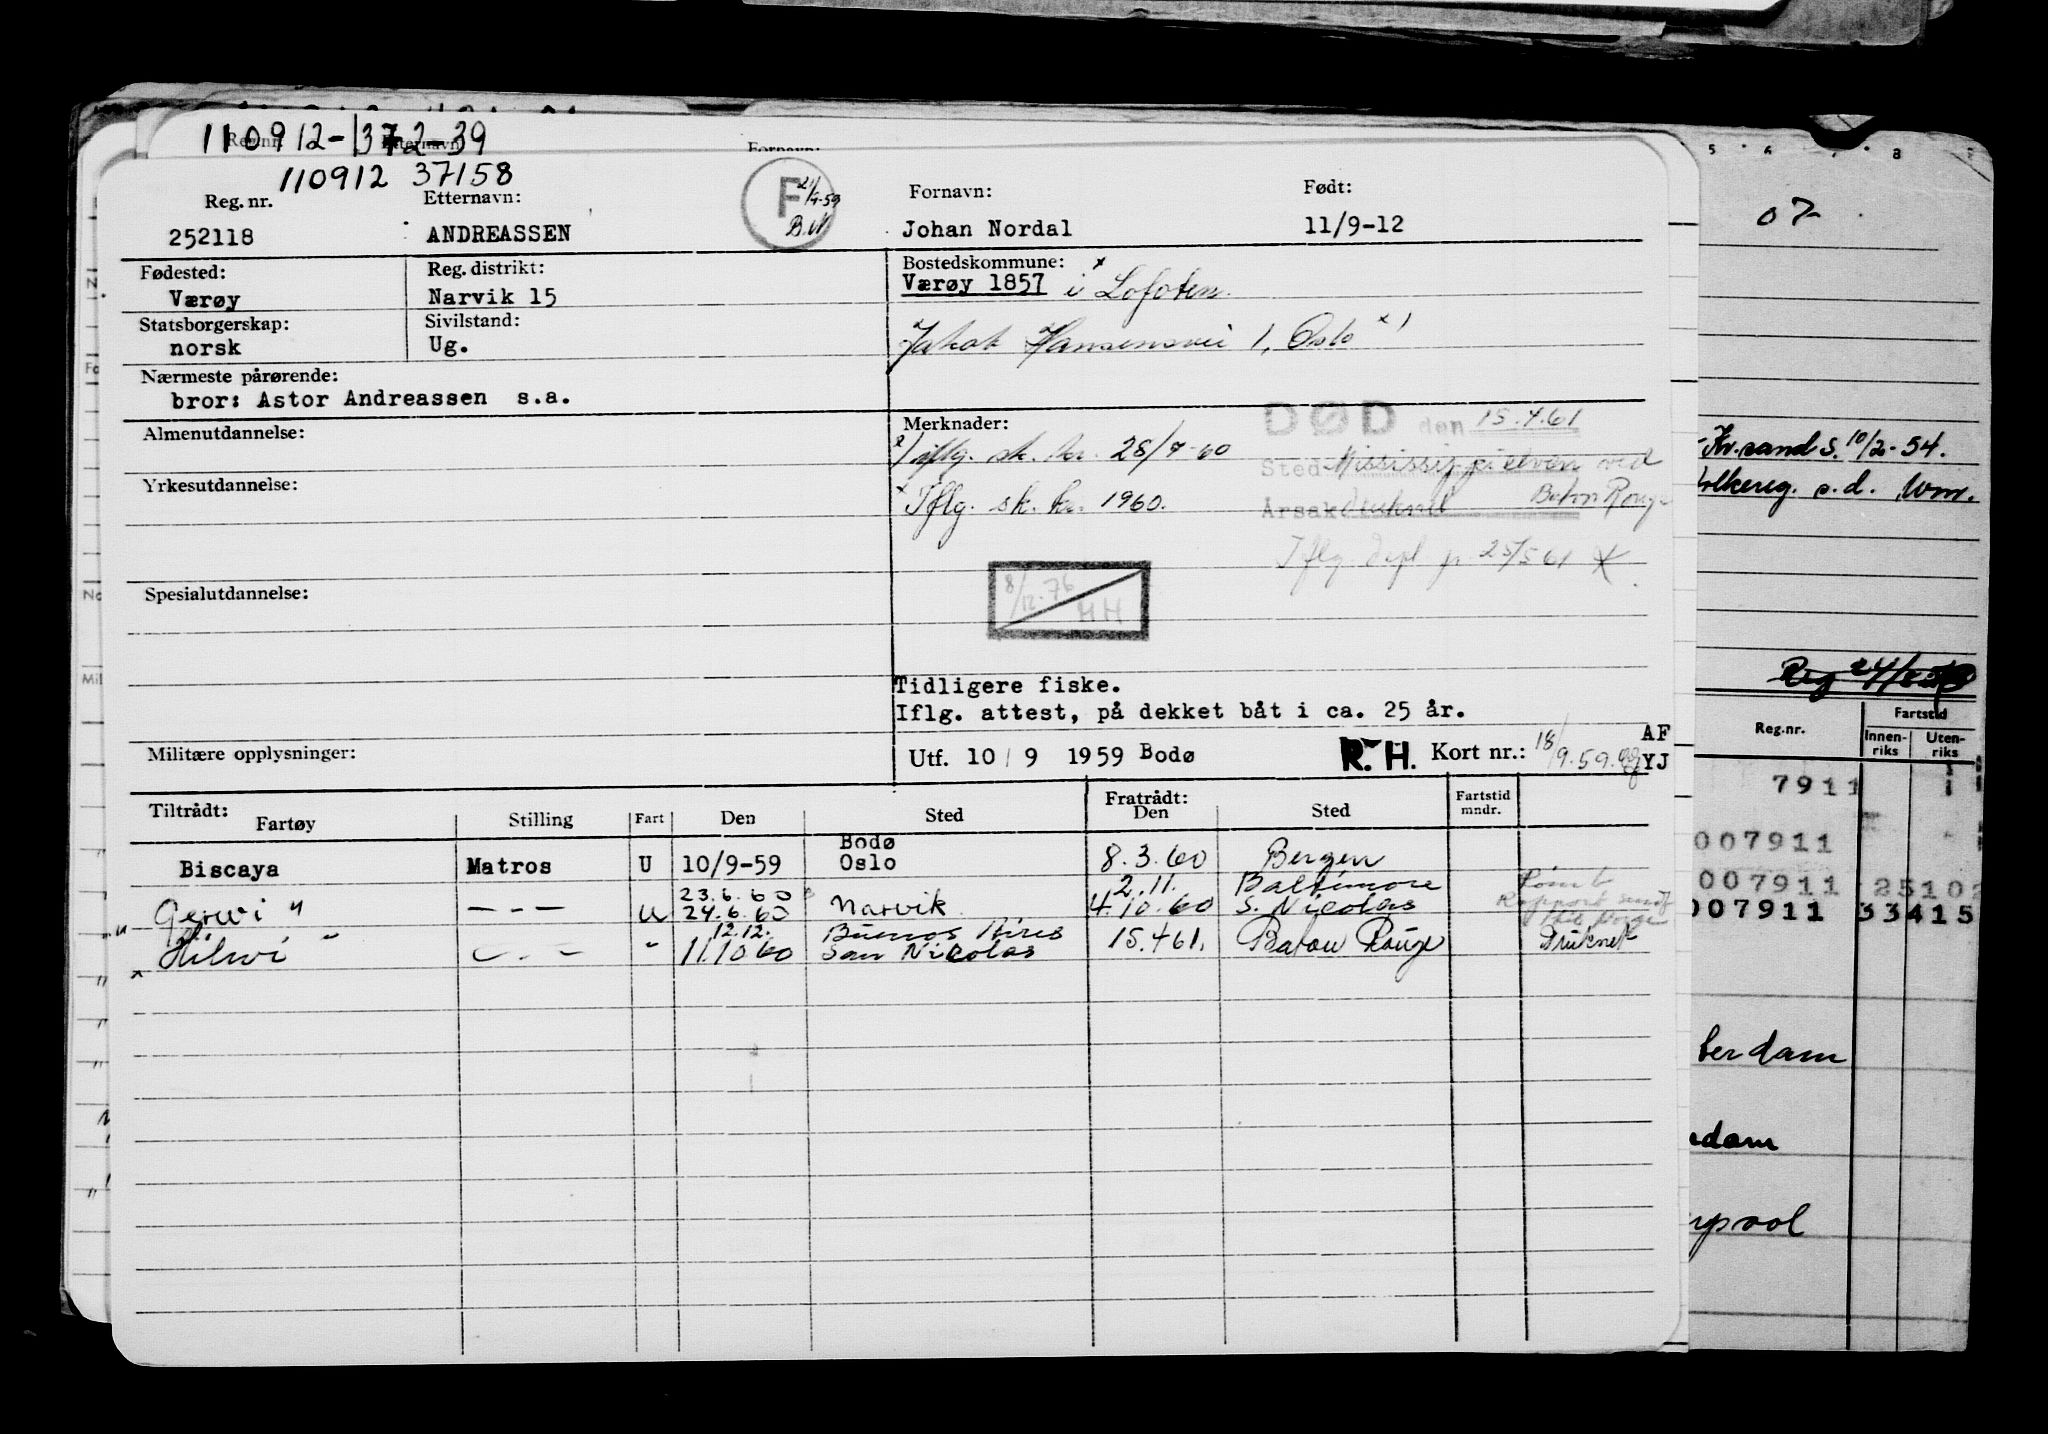 110912-1372-39
110912 37158
Reg. nr. Etternavn: Fornavn: Født:
252118 ANDREASSEN Johan Nordal 11/9-12
F 21/9-59 B.N.
Fødested: Reg. distrikt: Bostedskommune:
Værøy Narvik 15 Værøy 1857 i Lofoten
Statsborgerskap: Sivilstand:
norsk Ug. Jakob Hansensvei 1, Oslo x)
Nærmeste pårørende:
bror: Astor Andreassen s.a.
Almenutdannelse: Merknader: DØD den 15.4.61
x) iflg. sk. ker. 28/7-60 Sted Mississippi elven ved
Yrkesutdannelse: Baton Rouge
x Iflg. sk. ker. 1960. Årsak druknet
Iflg. depl. pr. 25/5 61
8/12.76 HH
Spesialutdannelse:
Tidligere fiske.
Iflg. attest, på dekket båt i ca. 25 år.
Militære opplysninger: Utf. 10/9 1959 Bodø R.H. Kort nr.: 18/9.59. AF
YJ
Tiltrådt: Fratrådt: Fartstid
Fartøy Stilling Fart Den Sted Den Sted mndr.
Bodø
Biscaya Matros U 10/9-59 Oslo 8.3.60 Bergen
23.6.60 2.11. Baltimore
Gerwi " - - - U 24.6.60 Narvik 4.10.60 S. Nicolas
Rapport
12.12. Buenos Aires
Hilwi " - . - " 11.10 60 San Nicolas 15.4 61. Baton Rouge Druknet
07
Kr.sand S. 10/2-54.
Folkereg. s.d.
Reg.nr. Fartstid
Innen-riks Uten-riks
7911 1
007911
007911 2510
007911 33415
terdam
dam